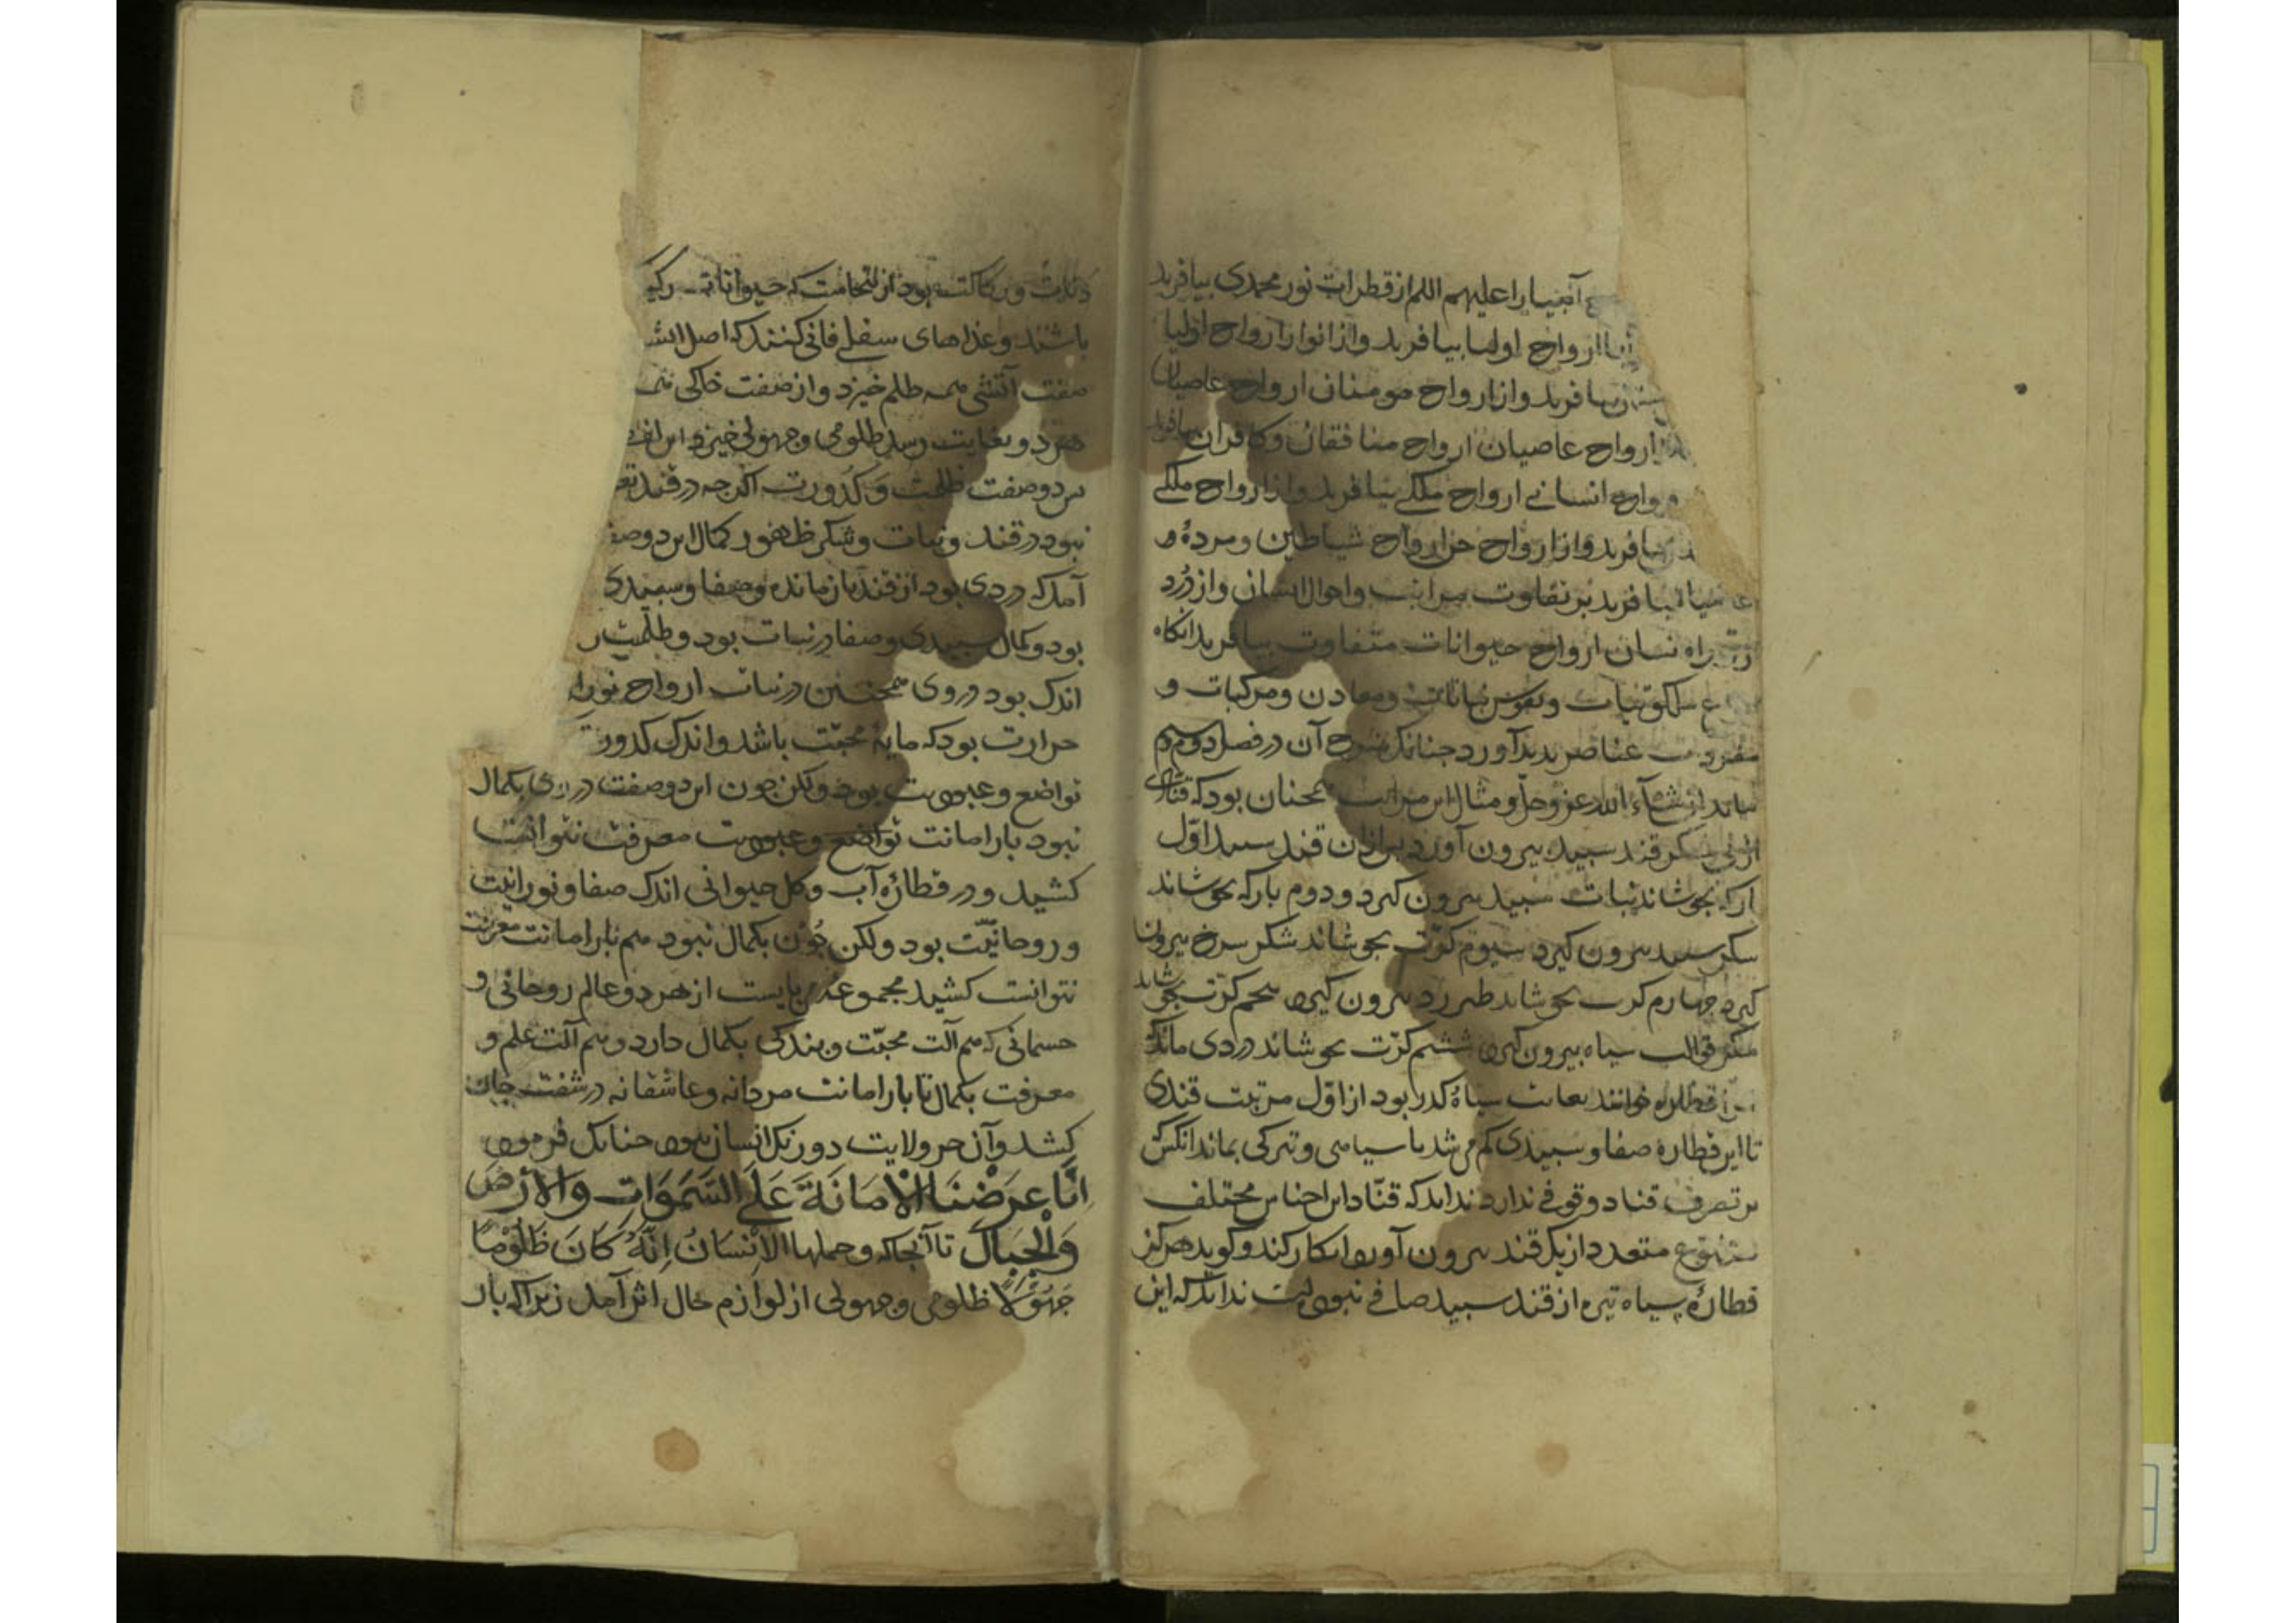 انبیا را علیهم السلم از قطرات نور محمدی بیافرید
ارواح اولیا بیافرید و از انوار ارواح اولیا
بیافرید و از ارواح مومنان ارواح عاصیان
ارواح عاصیان ارواح منافقان و کافران بیافرید
انسانی ارواح ملکی بیافرید و از ارواح ملکی
بیافرید و از ارواح جن ارواح شیاطین و مرده و
بیافرید بر تفاوت مراتب و احوال ایشان و از درد
ارواح حیوانات متفاوت بیافرید انکاه
و نفوس نباتات و معادن و مرکبات و
عناصر بدید آورد جنانک شرح آن در فصل دوم
بیاید ان شآء الله عز و جل و مثال این مراتب همجنان بود که قنادی
از نی شکر قند سبید بیرون آورد بس از ان قند سبید اول
بار که بجوشاند نبات سبید بیرون کیرد و دوم بار که بجوشاند
شکر سبید بیرون کیرد سیوم کرّت بجوشاند شکر سرخ بیرون
کیرد جهارم کرت بجوشاند طبرزد بیرون کیرد بنجم کرّت بجوشاند
شکر قوالب سیاه بیرون کیرد ششم کرّت بجوشاند دردی ماند که
آنرا قطاره خوانند بغایت سیاه و کدر بود از اوّل مرتبت قندی
تا این قطاره صفا و سبیدی کم می شد تا سیاهی و تیرکی بماند انکس که
بر تصرف قناد وقوفی ندارد نداند که قنّاد این اجناس مختلف
متنوع متعدد از یک قند بیرون آورد انکار کند و کوید هرکز
قطارهٔ سیاه تیره از قند سبید صافی نبوده است نداند که این
بود از انجاست که حیوانات
باشند و غذاهای سفلی فانی کنند که اصل
صفت آتشی همه ظلم خیزد و از صفت خاکی
هر دو بغایت رسد ظلومی و جهولی خیزد
بس دو صفت ظلمت و کدورت اکرجه در قند
نبود در قند و نبات و شکر ظهور کمال این دو صفت
آمد که دردی بود از قند باز مانده و صفا و سبیدی
بود و کمال سبیدی و صفا در نبات بود و ظلمت
اندک بود در وی همجنین در نبات ارواح
حرارت بود که مایهٔ محبّت باشد و اندک کدورت
تواضع و عبودیت بود ولکن جون این دو صفت در وی بکمال
نبود بار امانت تواضع و عبودیت معرفت نتوانست
کشید و در قطارهٔ آب و کل حیوانی اندک صفا و نورانیت
و روحانیّت بود ولکن جون بکمال نبود هم بار امانت معرفت
نتوانست کشید مجموعهٔ می بایست از هر دو عالم روحانی و
جسمانی که هم آلت محبّت و بندکی بکمال دارد و هم آلت علم و
معرفت بکمال تا بار امانت مردانه و عاشقانه در سفت جان
کشد و آن جز ولایت دو رنک انسان نبود جنانک فرمود
اِنَّا عَرَضْنَا الْاَمَانَةَ عَلَی السَّمَوَاتِ وَالْاَرْضِ
وَالْجِبَالِ تا آنجا که و حملها الْاِنْسَانُ اِنَّهُ کَانَ ظَلُوْمًا
جَهُوْلًا ظلومی و جهولی از لوازم حال انسان آمد زیرا که بار